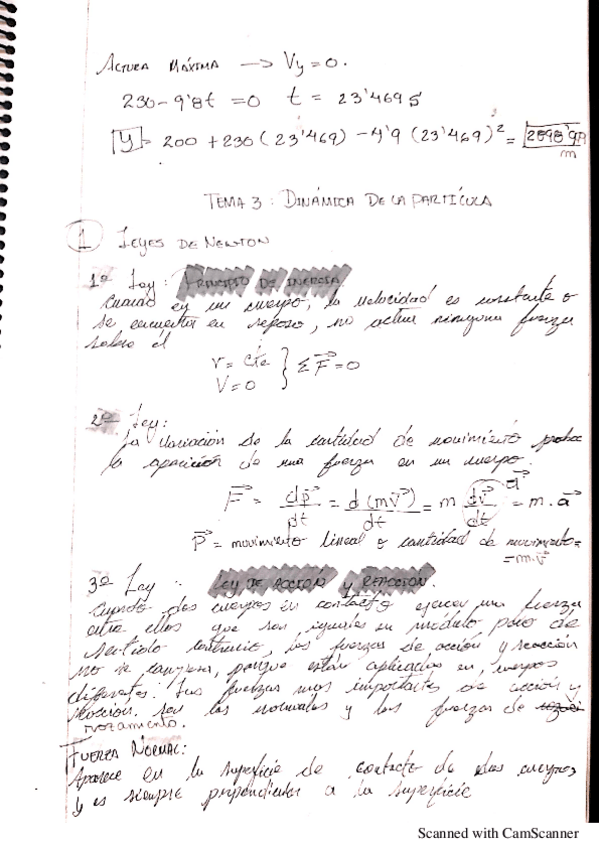 ALTURA MÁXIMA → Vy = 0.
230 - 9'8t = 0 t = 23'469 s
y = 200 + 230 (23'469) - 4'9 (23'469)² = 2898'98 m
TEMA 3: DINÁMICA DE LA PARTÍCULA
1 LEYES DE NEWTON
1ª Ley: PRINCIPIO DE INERCIA
Cuando en un cuerpo, la velocidad es constante o
se encuentra en reposo, no actua ninguna fuerza
sobre el
v = cte } Σ F⃗ = 0
V = 0
2ª Ley:
La variación de la cantidad de movimiento
la aparición de una fuerza en un cuerpo.
F⃗ = dp⃗/dt = d(mv⃗)/dt = m dv⃗/dt = m · a⃗
a⃗
p⃗ = movimiento lineal o cantidad de movimiento =
= m·v⃗
3ª Ley: LEY DE ACCIÓN y REACCIÓN.
Cuando dos cuerpos en contacto ejercen una fuerza
entre ellos que son iguales en módulo pero de
sentido contrario, las fuerzas de acción y reacción
no se cancelan, porque están aplicadas en cuerpos
diferentes. Las fuerzas mas importantes de acción y
reacción son las normales y las fuerzas de
rozamiento.
FUERZA NORMAL:
Aparece en la superficie de contacto de dos cuerpos
y es siempre perpendicular a la superficie
Scanned with CamScanner